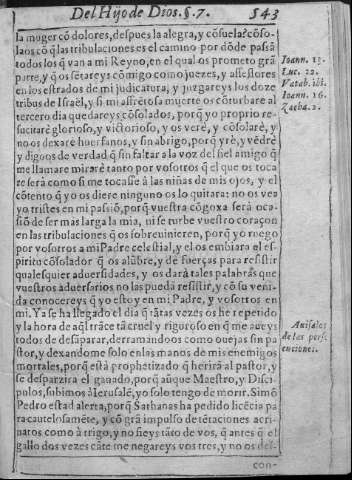 Del Hijo de Dios. §. 7. 543
la muger cõ dolores, despues la alegra, y cõsuela: cõso-
laos cõ q̃ las tribulaciones es el camino por dõde passã
todos los q̃ van a mi Reyno, en el qual os prometo grã
parte, y q̃ os sẽtareys cõmigo como juezes, y assessores
en los estrados de mi judicatura, y juzgareys los doze
tribus de Israël, y si mi afrẽtosa muerte os cõturbare al
tercero dia quedareys cõsolados, porq̃ yo proprio re-
sucitarè glorioso, y victorioso, y os verè, y cõsolarè, y
no os dexarè huerfanos, y sin abrigo, porq̃ yrè, y vẽdrè
y digoos de verdad q̃ sin faltar a la voz del fiel amigo q̃
me llamare mirarè tanto por vosotros q̃ el que os toca
re serà como si me tocasse â las niñas de mis ojos, y el
cõtento q̃ yo os diere ninguno os lo quitara: no os vea
yo tristes en mi passiõ, porq̃ vuestra cõgoxa serà oca-
siõ de ser mas larga la mia, ni se turbe vuestro coraçon
en las tribulaciones q̃ os sobreuinieren, porq̃ yo ruego
por vosotros a mi Padre celestial, y el os embiara el es-
piritu cõsolador q̃ os alũbre, y dè fuerças para resistir
qualesquier aduersidades, y os darà tales palabras que
vuestros aduersarios no las pueda resistir, y cõ su veni-
da conocereys q̃ yo estoy en mi Padre, y vosotros en
mi. Ya se ha llegado el dia q̃ tãtas vezes os he repetido
y la hora de aq̃l trãce tã cruel y riguroso en q̃ me aueys
todos de desãparar, derramandoos como ouejas sin pa
stor, y dexandome solo en las manos de mis enemigos
mortales, porq̃ està prophetizado q̃ herirà al pastor, y
se desparzira el ganado, porq̃ aũque Maestro, y Disci-
pulos, subimos â Ierusalẽ, yo solo tengo de morir. Simõ
Pedro estad alerta, porq̃ Sathanas ha pedido licẽcia pa
ra cautelosamẽte, y cõ grã impulso de tẽtaciones acri-
uaros como â trigo, y no fieys tãto de vos, q̃ antes q̃ el
gallo dos vezes cãte me negareys vos tres, y no os des-
con-
Ioann. 15.
Luc. 22.
Vatab. ibi.
Ioann. 16.
Zacha. 2.
Auisalos
de las perse
cuciones.